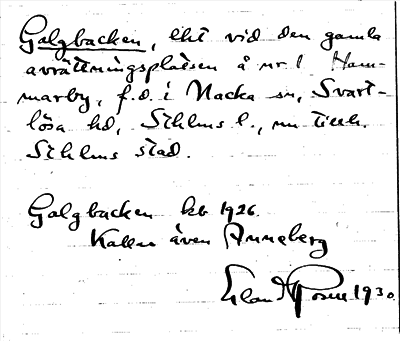 Galgbacken, lht vid den gamla
avrättningsplatsen å nr 1 Ham-
marby, f.d. i Nacka sn, Svart-
lösa hd, Sthlms l., nu tillh.
Sthlms stad.
Galgbacken kb 1926.
Kallas även Anneberg
Erland Rosell 1930